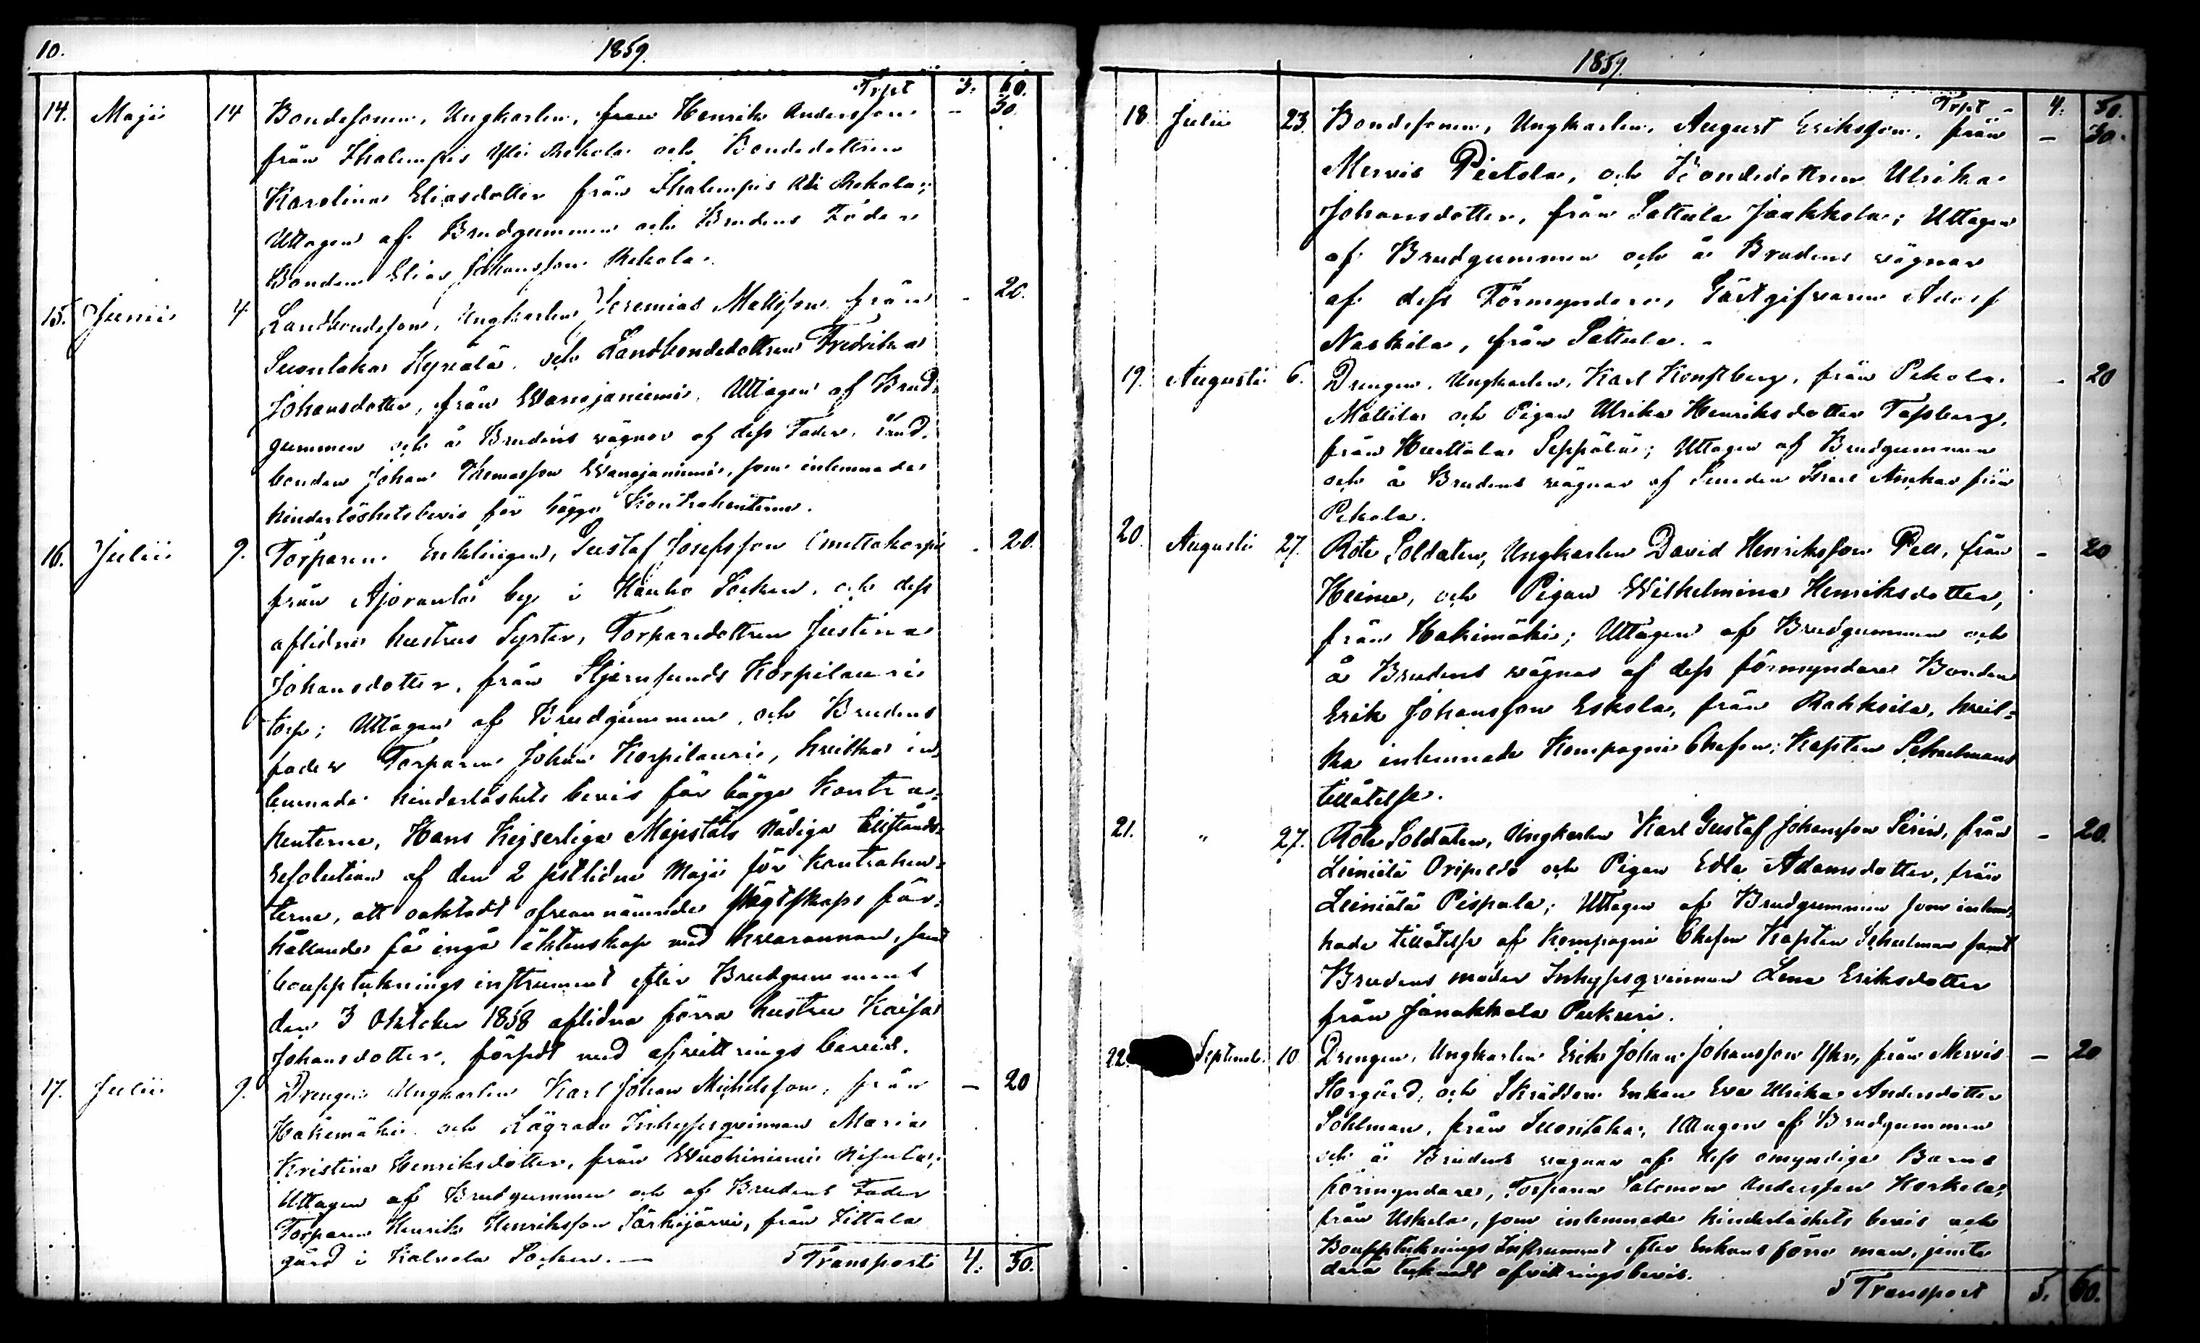 10.
1859.
Trpt 3. 60.
14. Maji 14 Bondesonen, Ungkarlen, från Henrik Andersson – 30.
från Ihalempis Yli Rekola och Bondedottren
Karolina Eliasdotter från Ihalempis Ali Rekola;
Uttagen af Brudgummen och Brudens Fader
Bonden Elias Johansson Rekola.
15. Junii 4 Landbondeson, Ungkarlen Jeremias Matsson från – 20.
Suontaka Kyrölä, och Landbondedottren Fredrika
Johansdotter, från Wanajaniemi, Uttagen af Brud-
gummen och å Brudens vägnar af dess Fader, Land-
bonden Johan Thomasson Wanajaniemi, som inlemnade
hinderlöshetsbevis för bägge Kontrahenterne.
16. Julii 9. Torparen Enklingen, Gustaf Josefsson – 20.
från Ajoranta by i Hauho Socken, och dess
aflidne hustrus Syster, Torparedottren Justina
Johansdotter, från Stjernsunds Korpilauri
torp; Uttagen af Brudgummen, och Brudens
fader Torparen Johan Korpilauri, hvilka in-
lemnade hinderlöshets bevis för bägge Kontra-
henterne, Hans Kejserliga Majestäts Nådiga tillstånds-
resolution af den 2 sistlidne Maji för kontrahen-
terne, att oaktadt ofvannämnde skyldskaps för-
hållande få ingå äktenskap med hvarannan, samt
bouppteknings instrument efter Brudgummens
den 3 Oktober 1858 aflidna förra hustru Kaisa
Johansdotter, försedt med afvittrings bevis.
17. Julii 9. Drengen Ungkarlen Karl Johan Michelsson, från – 20
Hakimäki och Lägrade Inhysesqvinnan Maria
Kristina Henriksdotter, från Wuohiniemi
Uttagen af Brudgummen och af Brudens Fader
Torparen Henrik Henriksson Särkijärvi, från Iittala
gård i Kalvola Socken. – Transport 4. 30.
1859.
Trpt – 4. 30.
18 Julii 23. Bondesonen, Ungkarlen, August Eriksson, från – 30.
Mervis Pietola, och Bondedottren Ulrika
Johansdotter, från Sattula Jaakkola; Uttagen
af Brudgummen och å Brudens vägnar
af dess Förmyndare, Gästgifvaren Adolf
Naskila, från Sattula. –
19. Augusti 6. Drengen, Ungkarlen, Karl Konstberg, från Pekola – 20
Mattila och Pigan Ulrika Henriksdotter Tassberg,
från Hurttala Seppälä; Uttagen af Brudgummen
och å Brudens vägnar af Smeden Israel från
Pekola.
20. Augusti 27. Rote Soldaten, Ungkarlen David Henriksson Pell, från – 20
Heinu, och Pigan Wilhelmina Henriksdotter,
från Hakimäki; Uttagen af Brudgummen och
å Brudens vägnar af dess förmyndare Bonden
Erik Johansson Eskola, från Rahkoila, hvil-
ka inlemnade Kompagnie Chefen, Kapten Schulmans
tillåtelse.
21. " 27. Rote Soldaten, Ungkarlen Karl Gustaf Johansson Serin, från – 20.
Leiniälä Oripelto och Pigan Edla Adamsdotter, från
Leiniälä Pispala; Uttagen af Brudgummen som inlem-
nade tillåtelse af Kompagnie Chefen Kapten Schulman samt
Brudens moder Inhysesqvinnan Lena Eriksdotter
från Janakkala Pukuri.
22. Septemb. 10 Drengen, Ungkarlen Erik Johan Johansson från Mervis – 20
Storgård, och Skräddare Enkan Eva Ulrika Andersdotter
Sohlman, från Suontaka, Uttagen af Brudgummen
och å Brudens vägnar af dess omyndiga Barns
förmyndare, Torparen Salomon Andersson Korkola,
från Uskela, som inlemnade hinderlöshets bevis och
Bouppteknings Instrument efter Enkans förra man, jemte
derå teknadt afvittringsbevis.
Transport 5. 60.